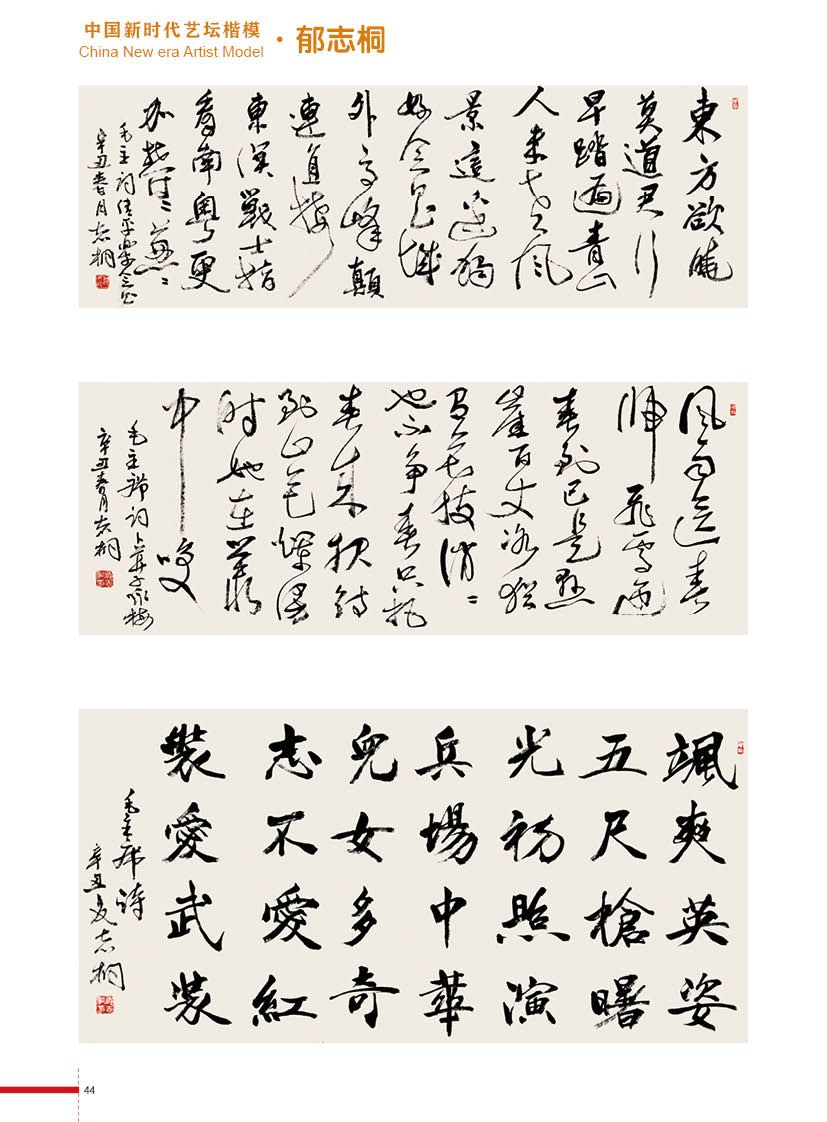 中国新时代艺坛楷模
China New era Artist Model
·郁志桐
東方欲曉
莫道君行
早踏遍青山
人未老風
景這邊獨
好會昌城
外高峰顛
連直接
東溟戰士指
看南粵更
加鬱〻蔥〻
毛主詞清平樂會昌
辛丑春月志桐
風雨送春
歸飛雪迎
春到已是懸
崖百丈冰猶
有花枝俏〻
也不爭春只把
春來報待
到山花爛漫
時她在叢
中笑
毛主席詞卜算子詠梅
辛丑春月志桐
颯爽英姿
五尺槍曙
光初照演
兵場中華
兒女多奇
志不愛紅
裝愛武裝
毛主席詩
辛丑夏志桐
44